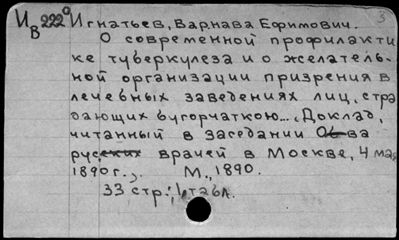 И 222⁰ Игнатьев, Варнава Ефимович. 3
В
О современной профилакти
ке туберкулеза и о желатель-
ной организации призрения в
лечебных заведениях лиц, стра
дающих бугорчаткою... (Доклад,
читанный в заседании О-ва
русских врачей в Москве, 4 мая
1890 г.). М., 1890.
33 стр.; 1 табл.